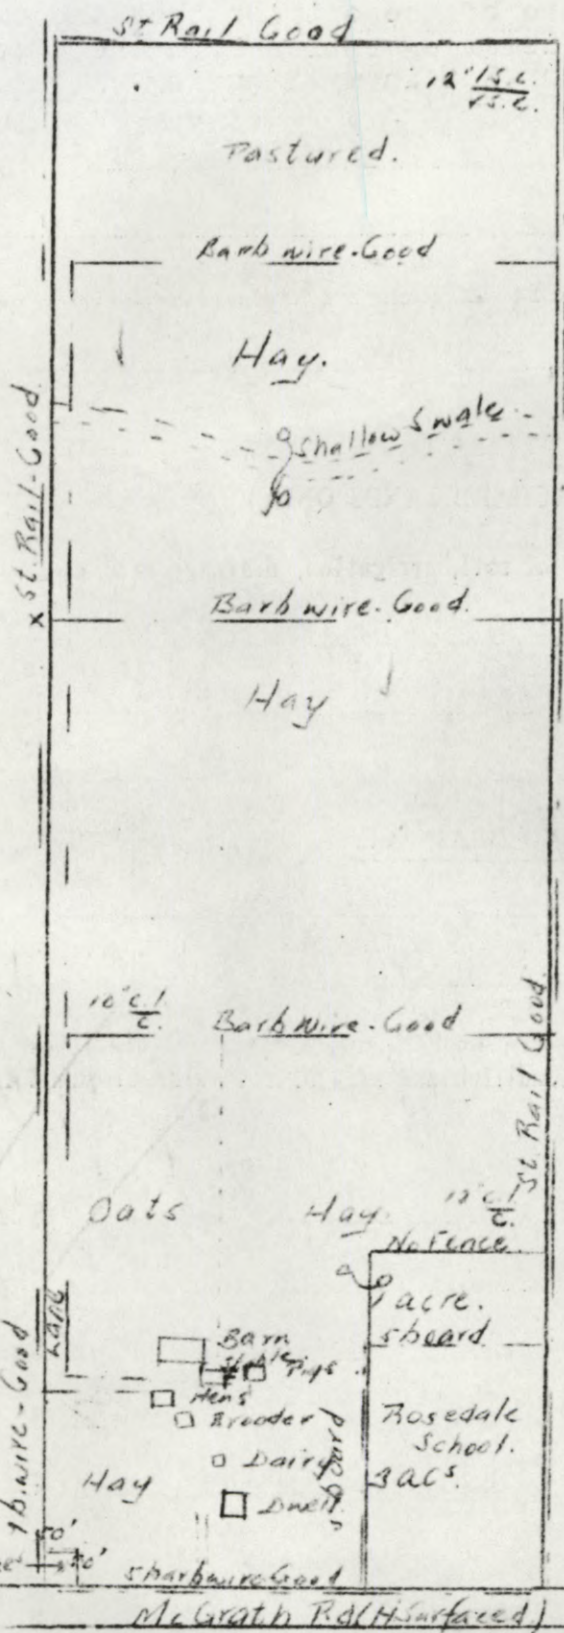 St Rail Good
12" 1 s.c.
Pastured.
Barb wire-Good
Hay.
Shallow Swale
St. Rail-Good
Barb wire-Good.
Hay
10" c.l.
c.
Barb wire-Good
St. Rail Good
Oats
Hay.
12" c.l.
c.
No Fence.
1 acre.
5 board
Lane
Barn
Stable
Pigs
Hens
Brooder
Dairy
Dwell.
5 board
Rosedale
School.
3 acs.
1 b. wire-Good
Hay
50'
50'
5 barb wire Good
McGrath Rd (H. Surfaced)